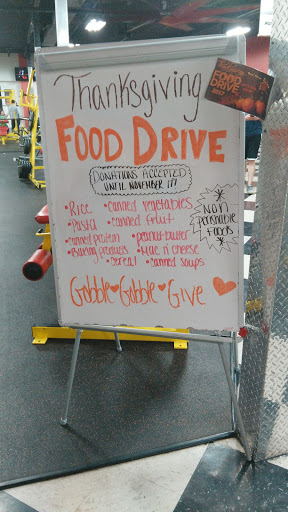 Thanksgiving
FOOD DRIVE
DONATIONS ACCEPTED
UNTIL NOVEMBER 17!
• Rice • canned vegetables
• Pasta • canned fruit
• canned protein • peanut butter
• Baking products • Mac n cheese
• Cereal • canned soups
* Non
Perishable
Foods *
Gobble Gobble Give
FOOD
DRIVE